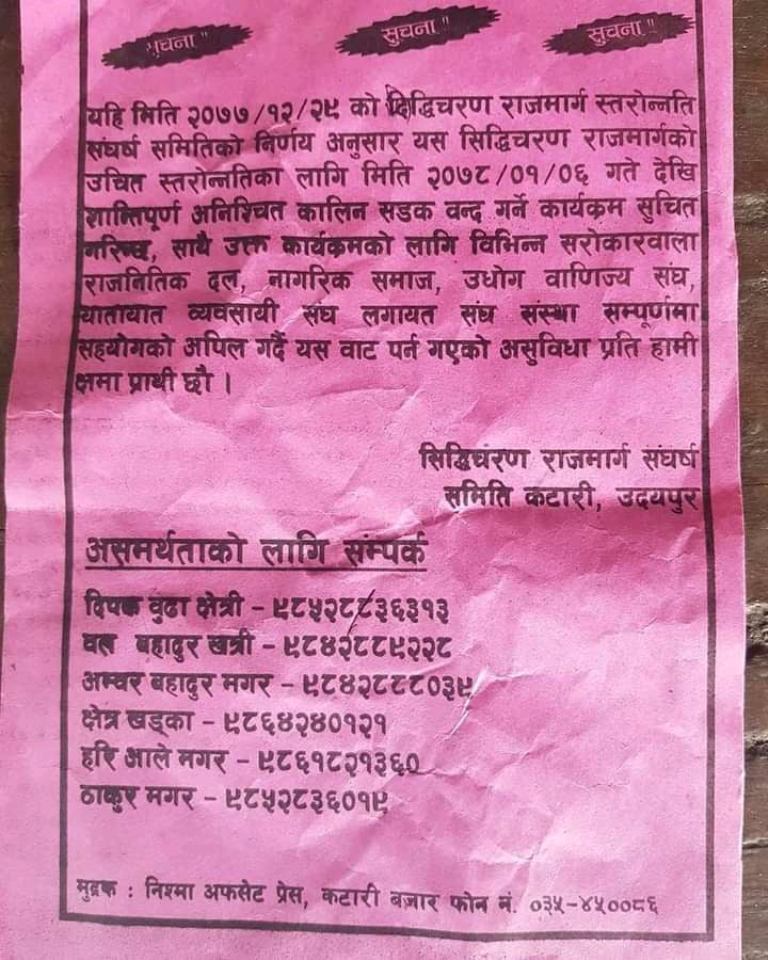 सुचना " सुचना " सुचना "
यहि मिति २०७७/१२/२९ को सिद्धिचरण राजमार्ग स्तरोन्नति
संघर्ष समितिको निर्णय अनुसार यस सिद्धिचरण राजमार्गको
उचित स्तरोन्नतिका लागि मिति २०७८/०१/०६ गते देखि
शान्तिपूर्ण अनिश्चित कालिन सडक वन्द गर्ने कार्यक्रम सुचित
गरिन्छ, साथै उक्त कार्यक्रमको लागि विभिन्न सरोकारवाला
राजनितिक दल, नागरिक समाज, उधोग वाणिज्य संघ,
यातायात व्यवसायी संघ लगायत संघ संस्था सम्पूर्णमा
सहयोगको अपिल गर्दै यस वाट पर्न गएको असुविधा प्रति हामी
क्षमा प्राथी छौ ।
सिद्धिचरण राजमार्ग संघर्ष
समिति कटारी, उदयपुर
असमर्थताको लागि संम्पर्क
दिपक वुढा क्षेत्री – ९८५२८८३६३१३
वल बहादुर खत्री – ९८४२८८९२२८
अम्वर बहादुर मगर – ९८४२८८८०३९
क्षेत्र खड्का – ९८६४२४०१२१
हरि आले मगर – ९८६१८२१३६०
ठाकुर मगर – ९८५२८३६०१९
मुद्रक : निश्मा अफसेट प्रेस, कटारी बजार फोन नं. ०३५-४५००८६